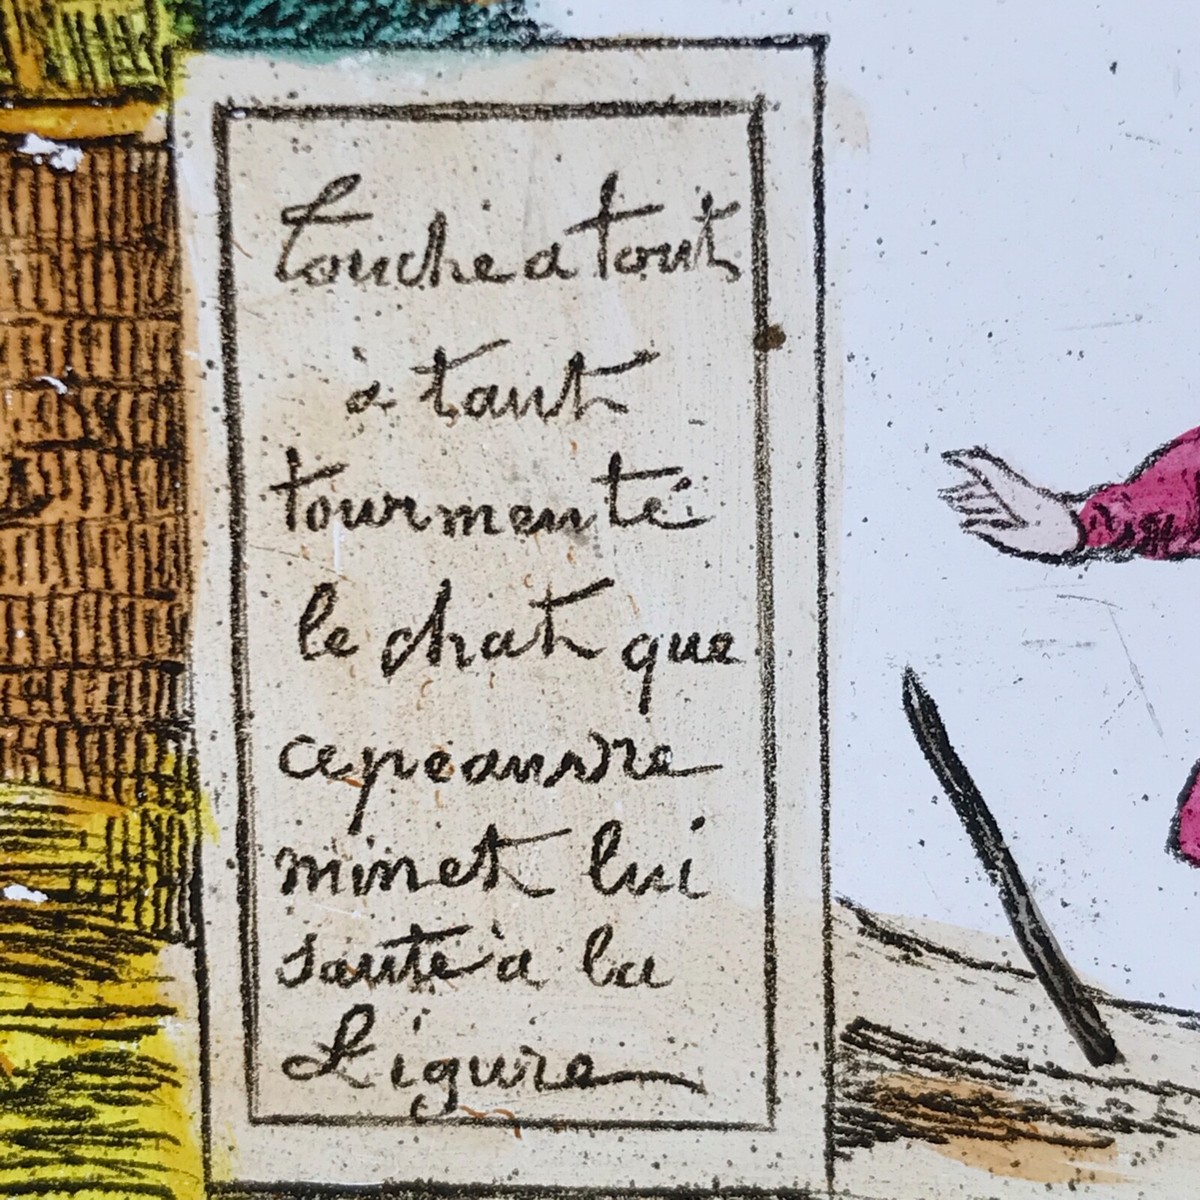 touche a tout
à tant
tourmenté
le chat que
ce peauvre
minet lui
saute à la
Ligure